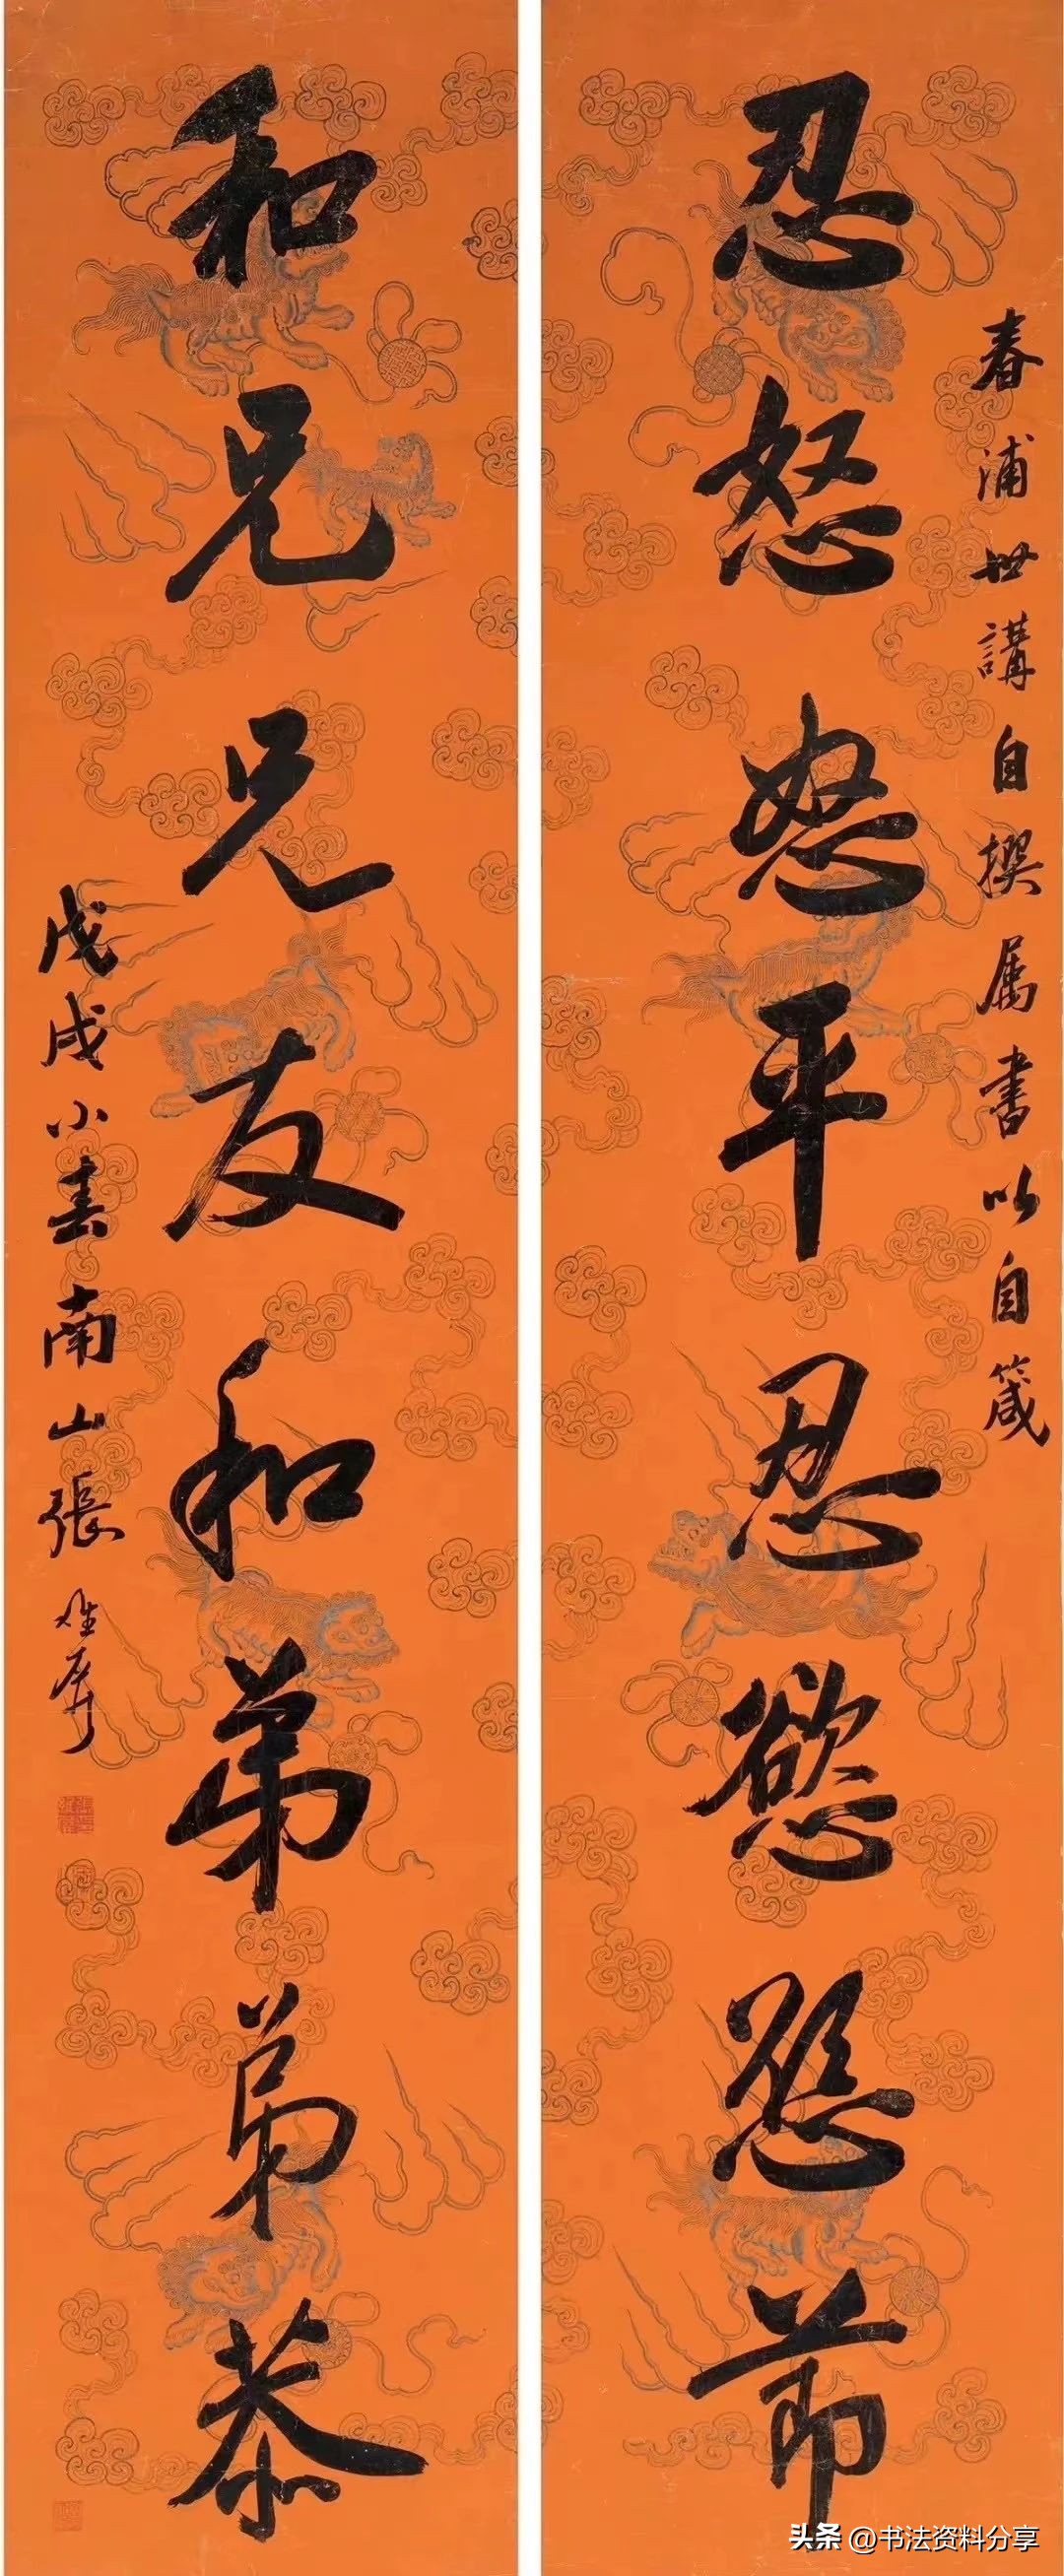 春浦世講自撰属書以自箴
忍怒怒平忍慾慾節
和兄兄友和弟弟恭
戊戌小春南山張維屏
头条 @书法资料分享